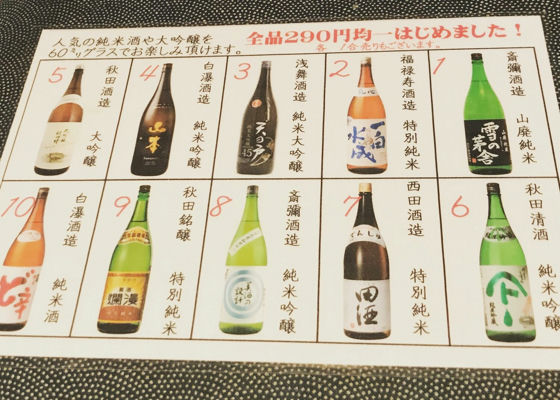 人気の純米酒や大吟醸を
60㍉グラスでお楽しみ頂けます。
全品290円均一はじめました！
各 1合売りもございます。
1
斎彌酒造 山廃純米
雪の茅舎
2
福禄寿酒造 特別純米
一白水成
3
浅舞酒造 純米大吟醸
天の戸
45
4
白瀑酒造 純米吟醸
山本
5
秋田酒造 大吟醸
6
秋田清酒 純米吟醸
7
西田酒造 特別純米
でんしゅ
田酒
8
斎彌酒造 純米吟醸
美酒の設計
9
秋田銘醸 特別純米
爛漫
10
白瀑酒造 純米酒
ど